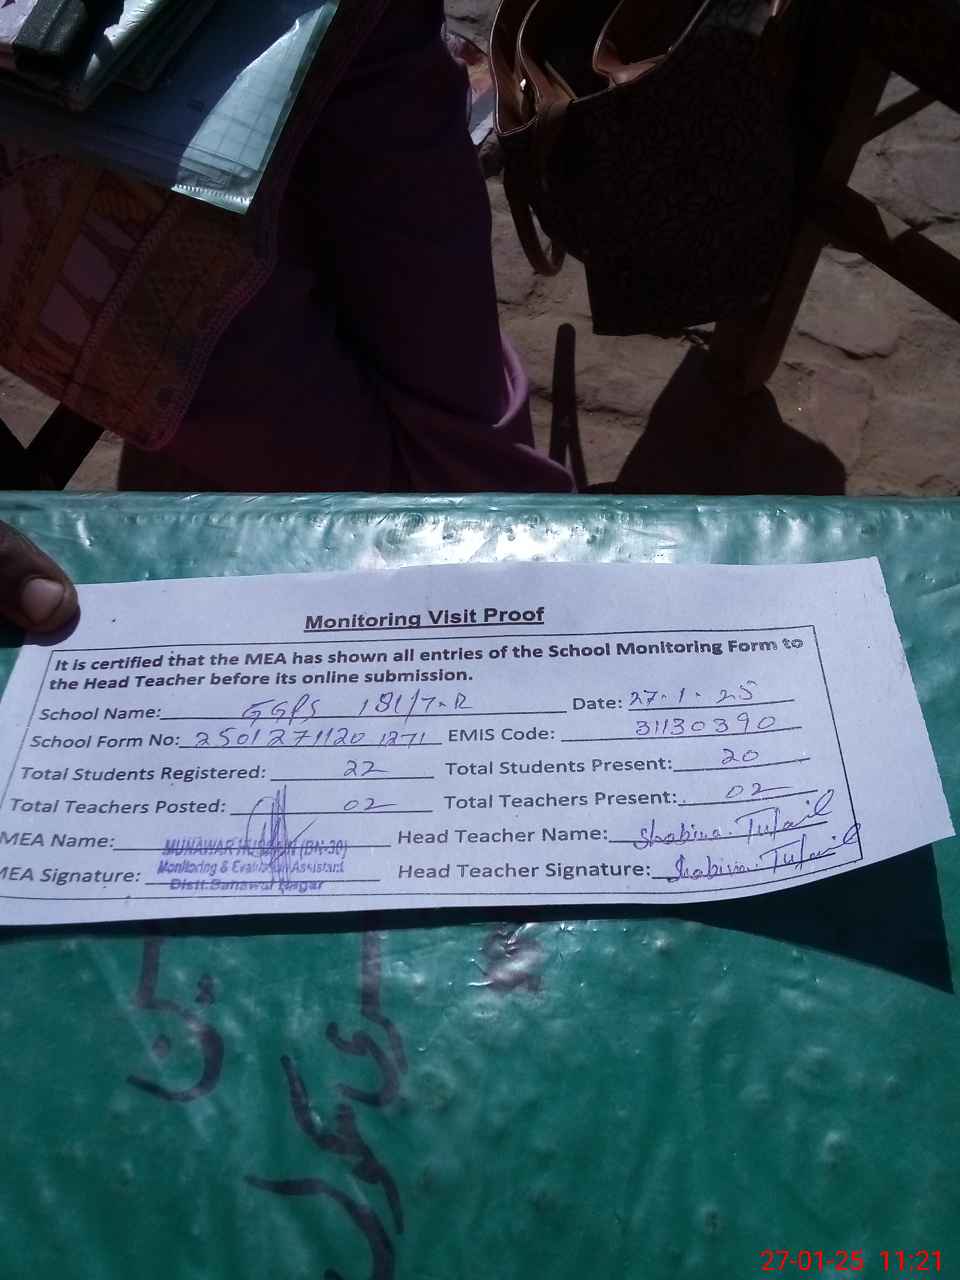 Monitoring Visit Proof
It is certified that the MEA has shown all entries of the School Monitoring Form to
the Head Teacher before its online submission.
School Name: GGPS 181/7-R Date: 27-1-25
School Form No: 2501271120 1271 EMIS Code: 31130390
Total Students Registered: 22 Total Students Present: 20
Total Teachers Posted: 02 Total Teachers Present: 02
MEA Name: MUNAWAR HUSSAIN (BN-30) Head Teacher Name: Shabina Tufail
Monitoring & Evaluation Assistant
MEA Signature: Head Teacher Signature: Shabina Tufail
Distt. Bahawal Nagar
27-01-25 11:21